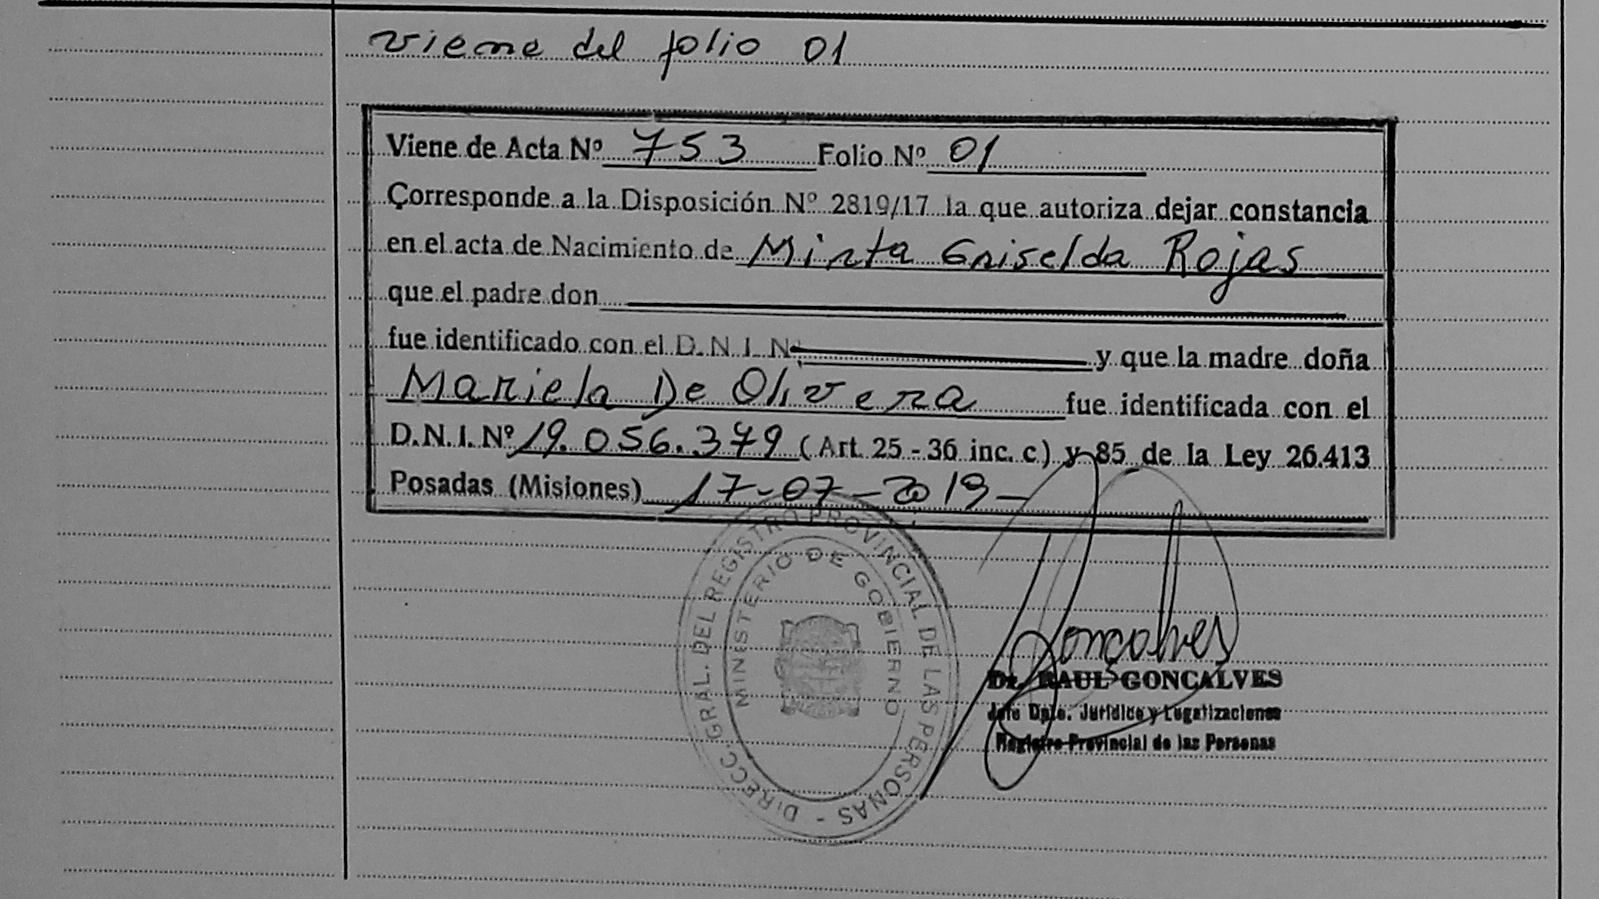 viene del folio 01
Viene de Acta Nº 753 Folio Nº 01
Corresponde a la Disposición Nº 2819/17 la que autoriza dejar constancia
en el acta de Nacimiento de Mirta Griselda Rojas
que el padre don
fue identificado con el D.N.I. Nº y que la madre doña
Mariela De Olivera fue identificada con el
D.N.I. Nº 19.056.379 (Art. 25 - 36 inc. c) y 85 de la Ley 26.413
Posadas (Misiones) 17-07-2019-
DIRECC. GRAL. DEL REGISTRO PROVINCIAL DE LAS PERSONAS -
MINISTERIO DE GOBIERNO
Gonçalves
Dr. RAUL GONÇALVES
Jefe Dpto. Jurídico y Legalizaciones
Registro Provincial de las Personas